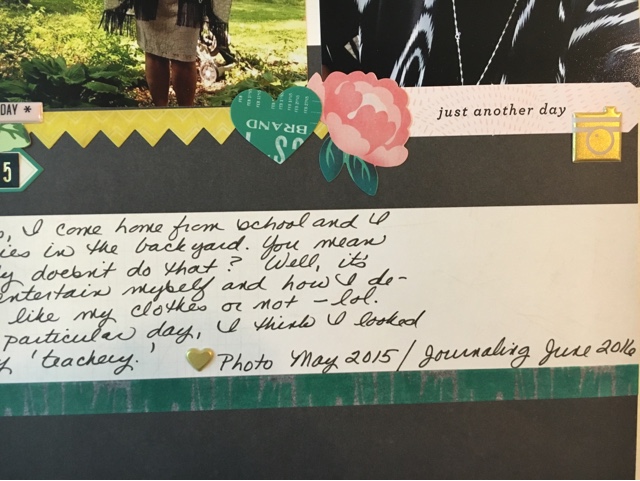 DAY *
BRAND
just another day
5
, I come home from school and I
ies in the backyard. You mean
y doesn't do that? Well, it's
entertain myself and how I de-
like my clothes or not - lol.
particular day, I think I looked
y 'teachery.' Photo May 2015 / Journaling June 2016